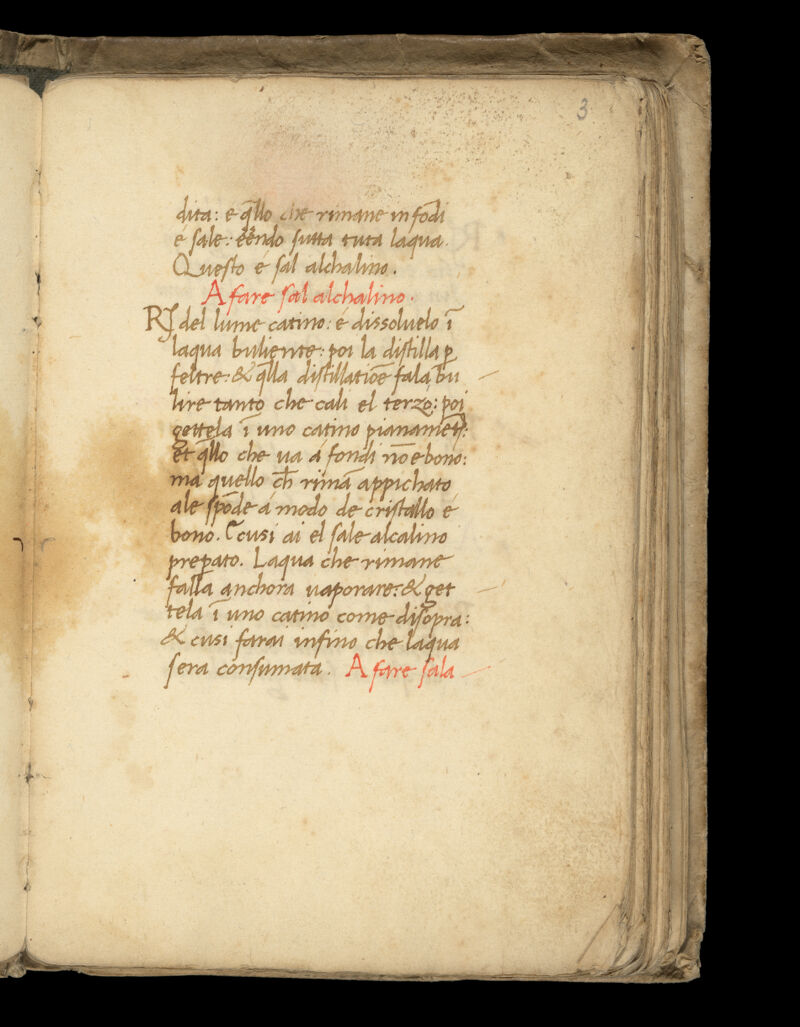 3
dita: e q̄llo che rimane in fōdi
e sale: eēndo sutta tuta laqua.
Questo e sal alchalino.
A fare sal alchalino.
R del lume catino: e dissoluelo ī
laqua buliente: poi la distilla ꝑ
feltre: & q̄lla distillatiōe fala bu
lire tanto che cali el terzo: poi
gettela ī uno catino pianamēte:
et q̄llo che ua a fondi nō e bono:
ma quello ch̄ rimā appichato
ale spōde a modo de cristallo e
bono. E cusi ai el sale alcalino
preꝑato. Laqua che rimane
falla anchora uaporare: & get
tela ī uno catino come disopra:
& cusi farai infino che laqua
sera consumata. A fare sala